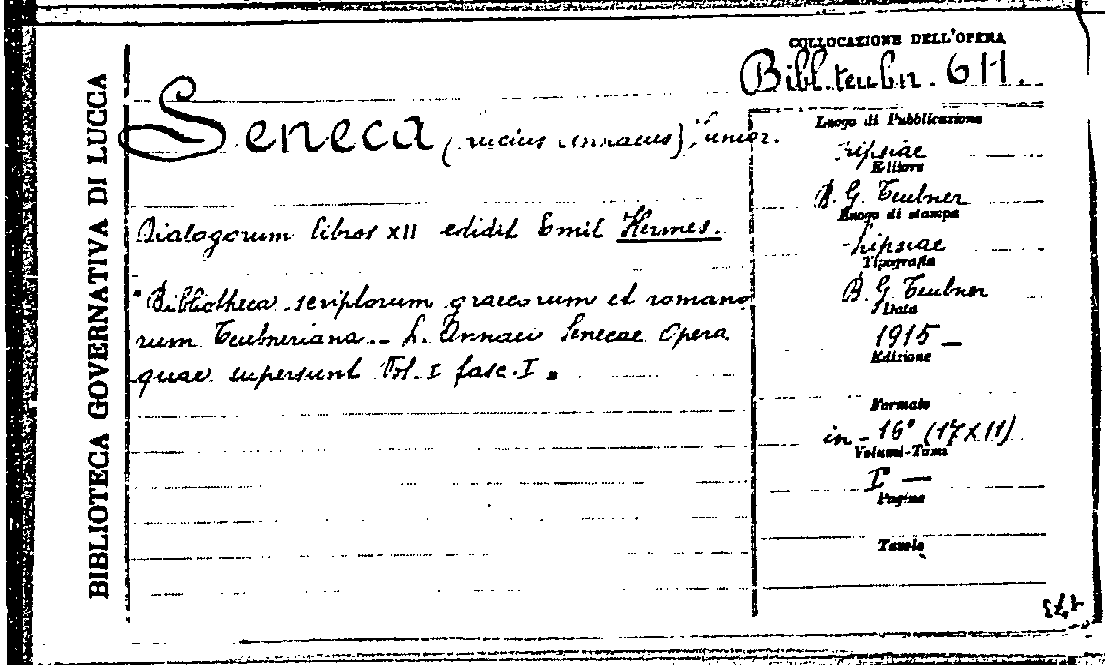 BIBLIOTECA GOVERNATIVA DI LUCCA
COLLOCAZIONE DELL'OPERA
Bibl. teubn. 611.
Seneca (Lucius Annaeus), Junior.
Dialogorum libros XII edidit Emil Hermes.
"Bibliotheca scriptorum graecorum et romano
rum Teubneriana - L. Annaei Senecae Opera
quae supersunt Vol. I fasc. I"
Luogo di Pubblicazione
Lipsiae
Editore
B. G. Teubner
Luogo di stampa
Lipsiae
Tipografia
B. G. Teubner
Data
1915 —
Edizione
Formato
in - 16° (17X11)
Volumi-Tomi
I° —
Pagine
Tavole